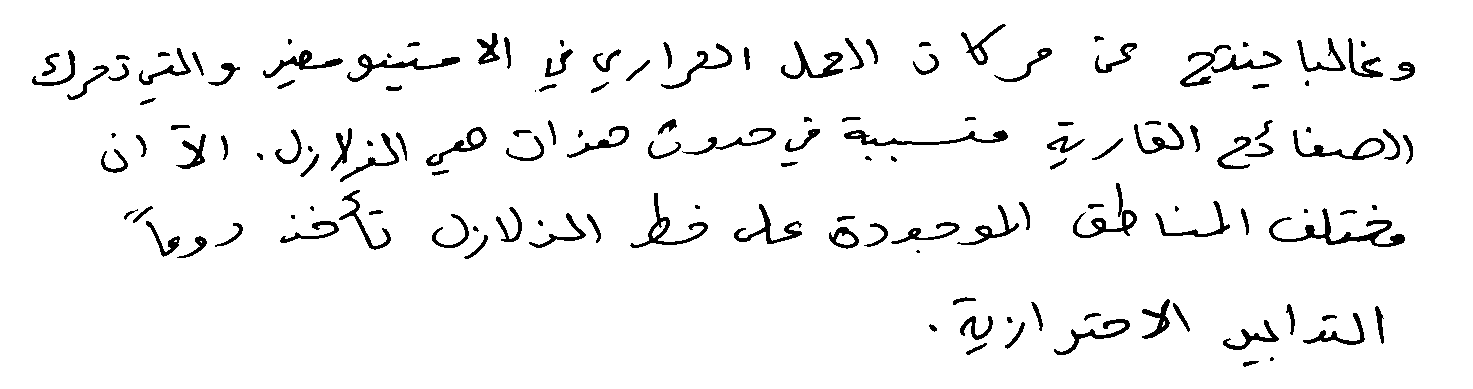 وغالبا ينتج عن حركات الحمل الحراري في الاستينوسفير والتي تحرك
الصفائح القارية متسببة في حدوث هزات هي الزلازل. الآ ان
مختلف المناطق الموجودة على خط الزلازل تأخذ دوماً
التدابير الاحترازية.